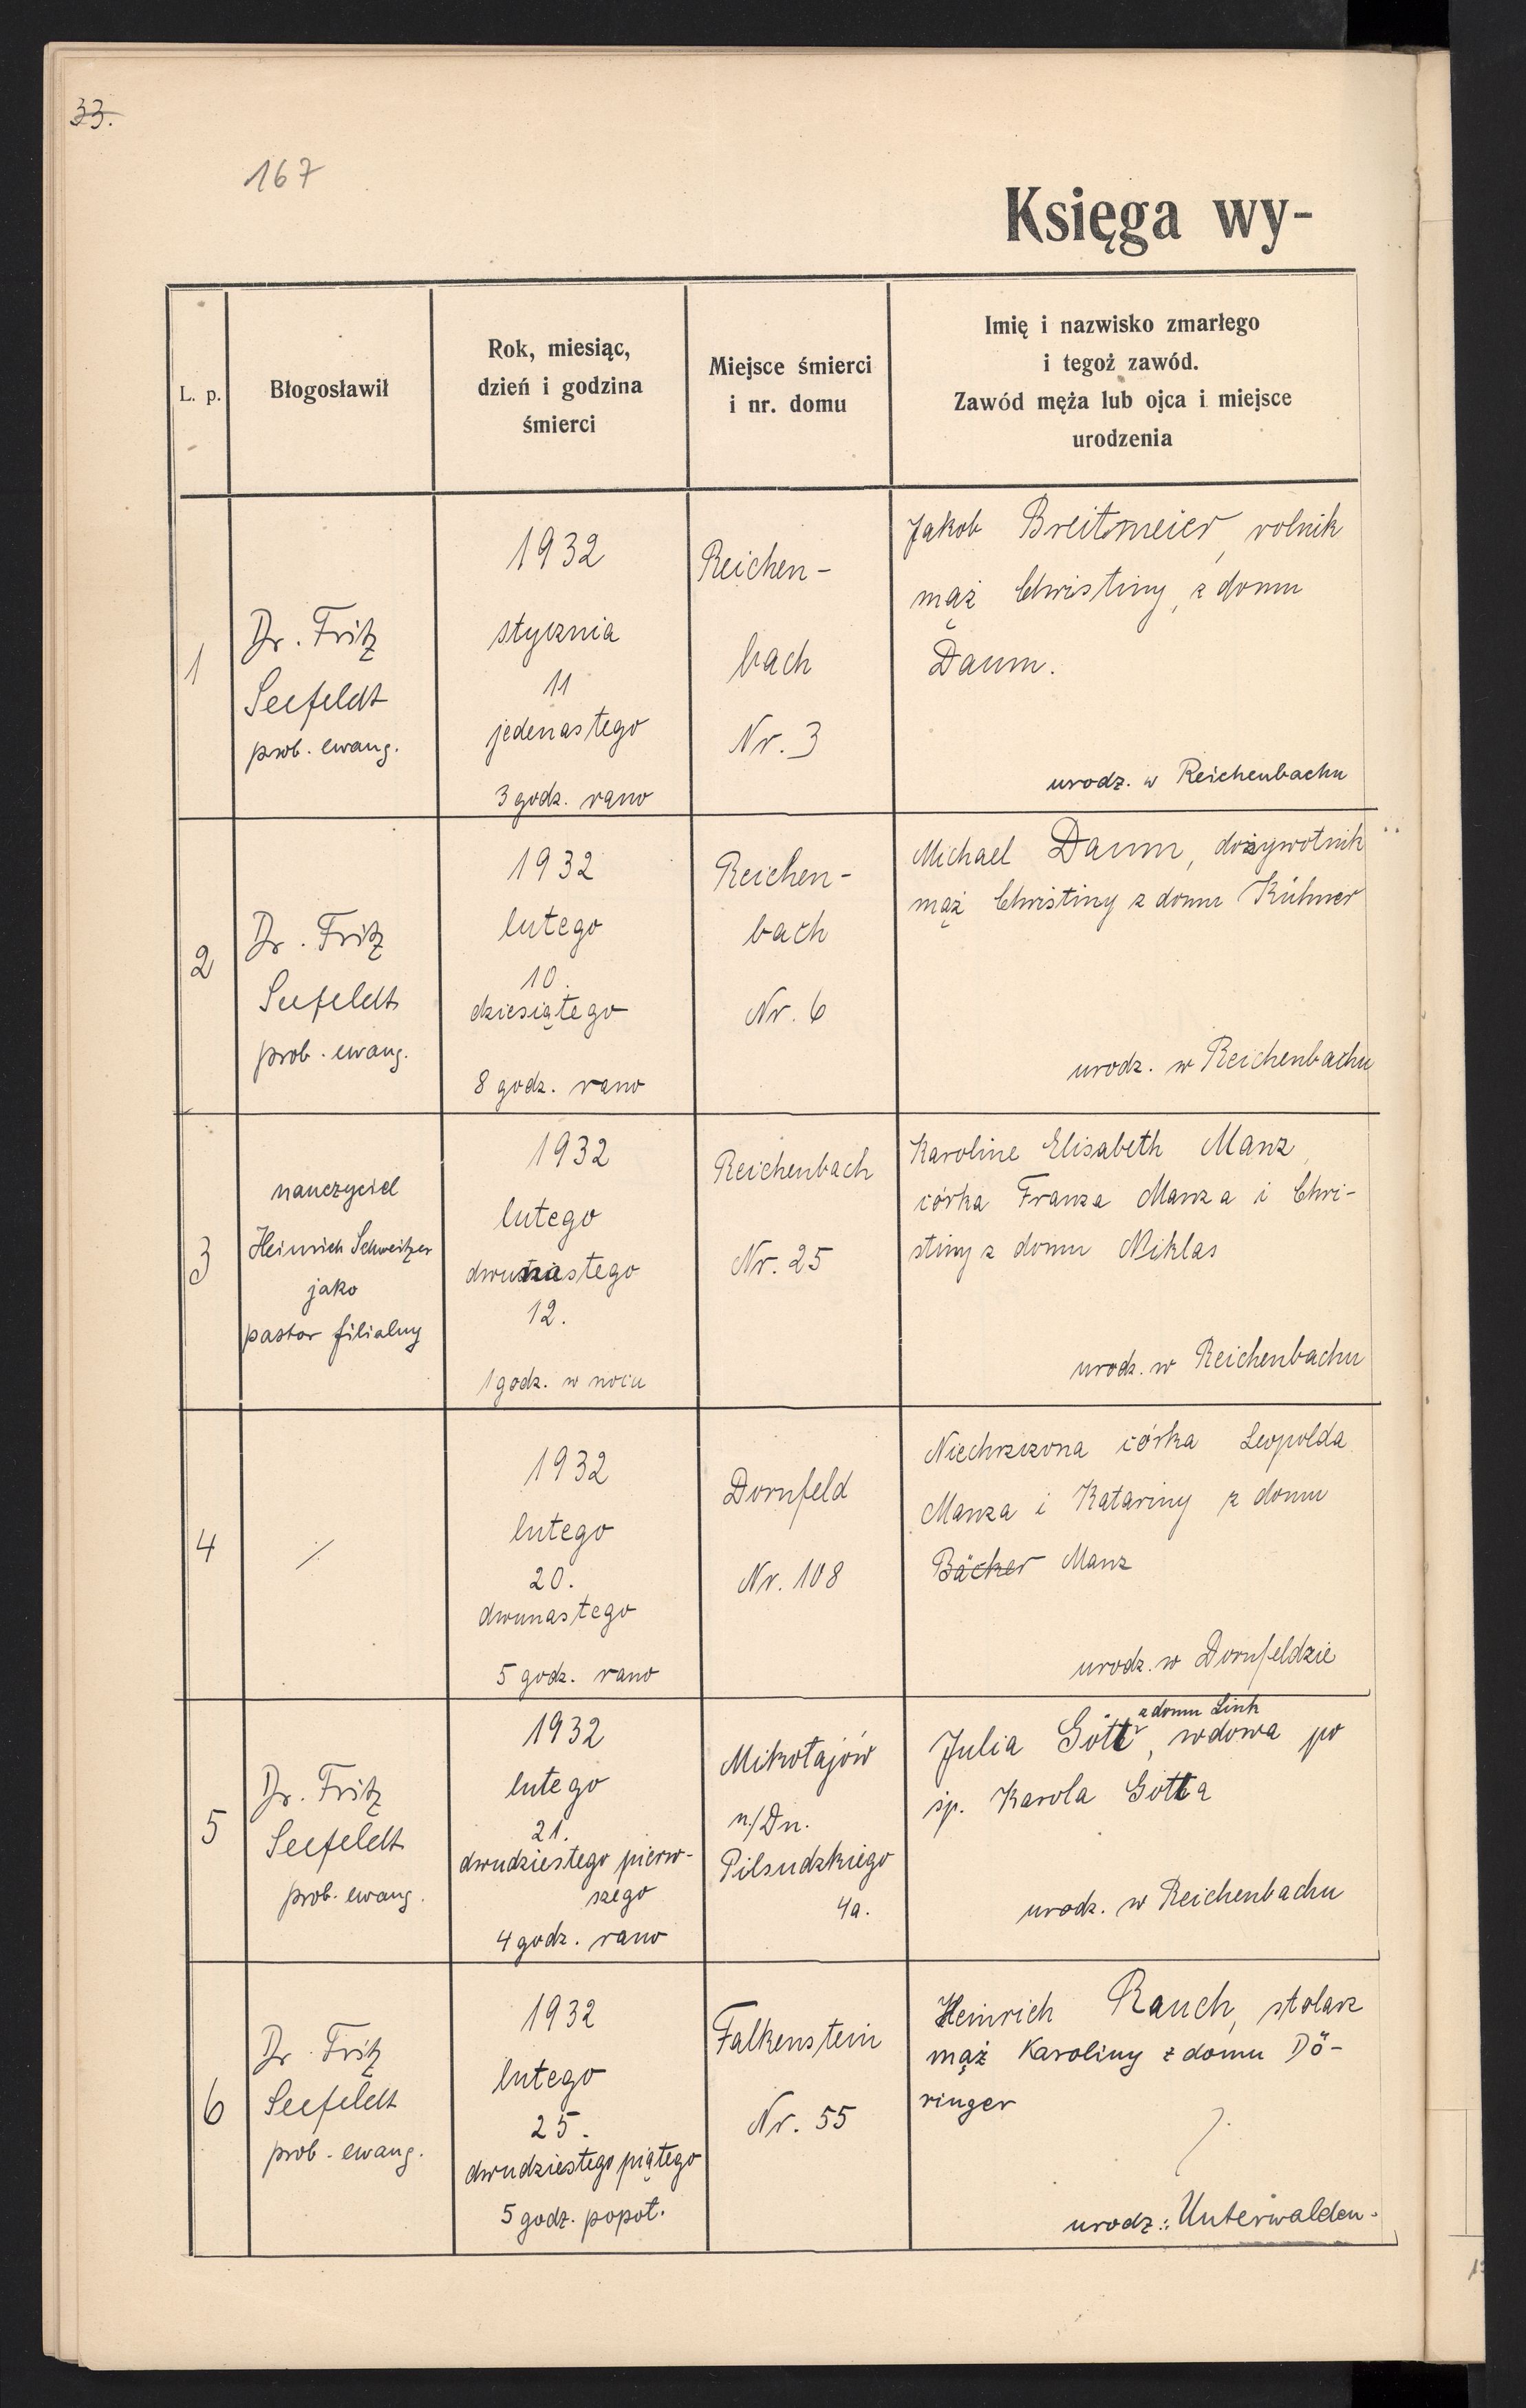 33.
167
Księga wy-
L. p.
Błogosławił
Rok, miesiąc,
dzień i godzina
śmierci
Miejsce śmierci
i nr. domu
Imię i nazwisko zmarłego
i tegoż zawód.
Zawód męża lub ojca i miejsce
urodzenia
1
Dr. Fritz
Seefeldt
prob. ewang.
1932
stycznia
11
jedenastego
3 godz. rano
Reichen-
bach
Nr. 3
Jakob Breitmeier, rolnik
mąż Christiny, z domu
Daum.
urodz. w Reichenbachu
2
Dr. Fritz
Seefeldt
prob. ewang.
1932
lutego
10.
dziesiątego
8 godz. rano
Reichen-
bach
Nr. 6
Michael Daum, dożywotnik
mąż Christiny z domu Kühner
urodz. w Reichenbachu
3
nauczyciel
Heinrich Schweitzer
jako
pastor filialny
1932
lutego
dwunastego
12.
1 godz. w nocu
Reichenbach
Nr. 25
Karoline Elisabeth Manz,
córka Franza Manza i Chri-
stiny z domu Niklas
urodz. w Reichenbachu
4
/
1932
lutego
20.
dwunastego
5 godz. rano
Dornfeld
Nr. 108
Niechrzczona córka Leopolda
Manza i Katariny z domu
Bäcker Manz
urodz. w Dornfeldzie
5
Dr. Fritz
Seefeldt
prob. ewang.
1932
lutego
21.
dwudziestego pierw-
szego
4 godz. rano
Mikołajów
n/Dn.
Pilsudzkiego
4a.
z domu Link
Julia Gött, wdowa po
śp. Karola Götta
urodz. w Reichenbachu
6
Dr. Fritz
Seefeldt
prob. ewang.
1932
lutego
25.
dwudziestego piątego
5 godz. popoł.
Falkenstein
Nr. 55
Heinrich Rauch, stolarz
mąż Karoliny z domu Dö-
ringer
urodz.: Unterwalden.